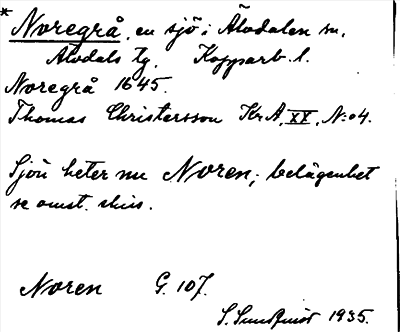 * Noregrå, en sjö i Älvdalen sn,
Älvdals tg. Kopparb. l.
Noregrå 1645.
Thomas Christersson Kr. A, XX, N:o 4.
Sjön heter nu Noren; belägenhet
se omst. skiss.
Noren G. 107.
S. Sundquist 1935.